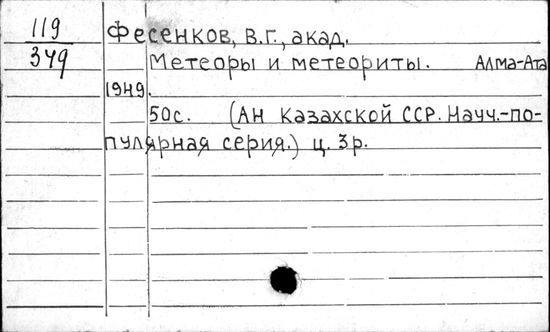 119
349
Фесенков, В.Г., акад.
Метеоры и метеориты. Алма-Ата
1949.
50с. (Ан Казахской ССР. Науч.-по-
пулярная серия.) ц. 3р.